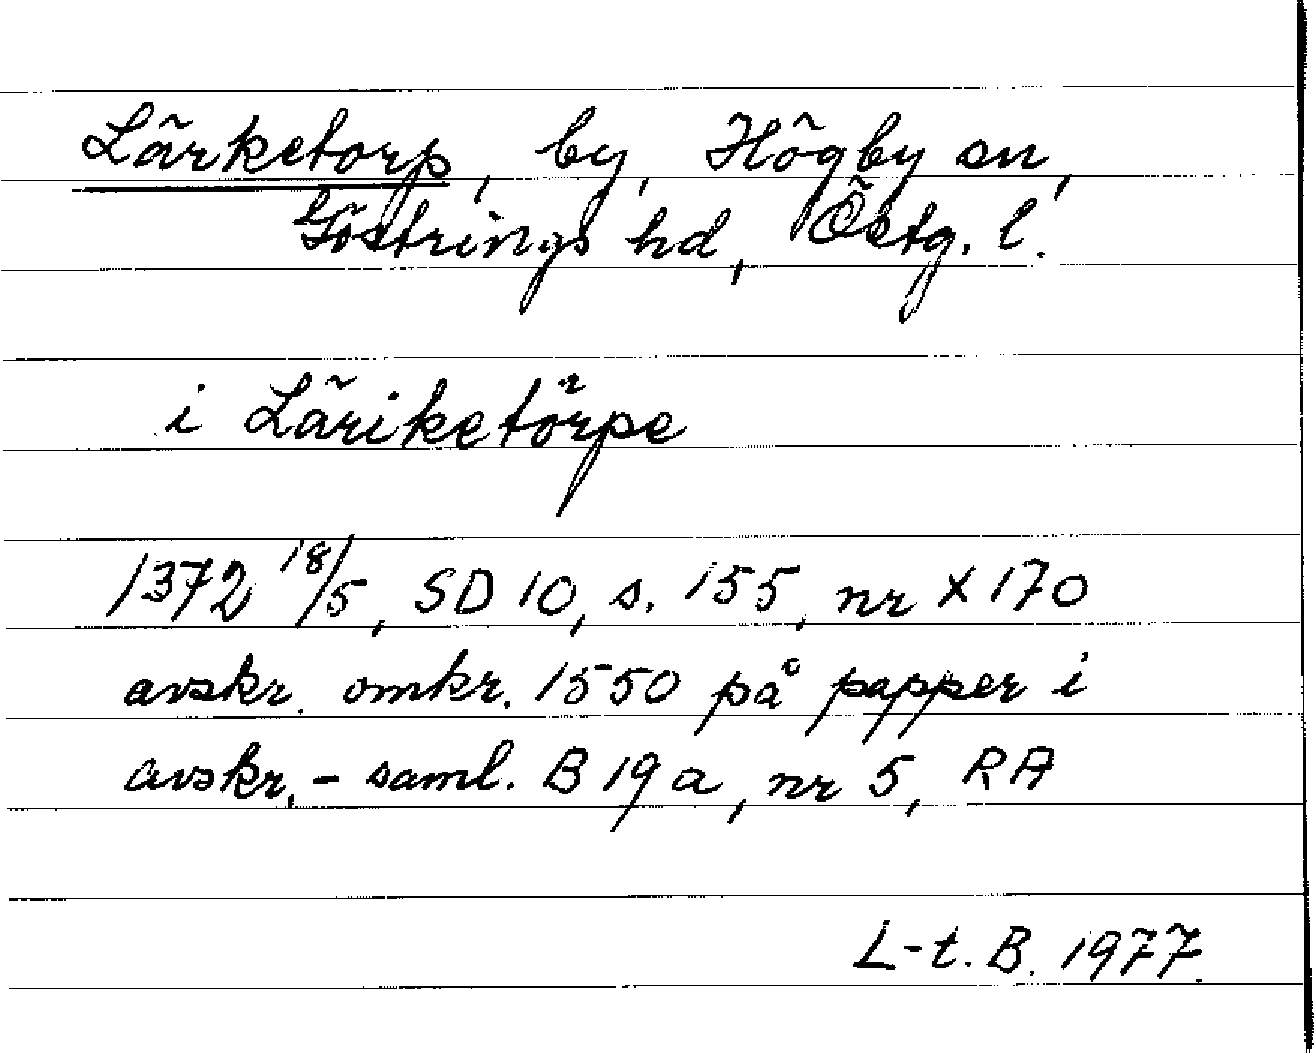 Lärketorp, by, Högby sn,
Göstrings hd, Östg. l.
i Läriketörpe
1372 18/5, SD 10, s. 155, nr X 170
avskr. omkr. 1550 på papper i
avskr.-saml. B 19 a, nr 5, RA
L-t. B. 1977.